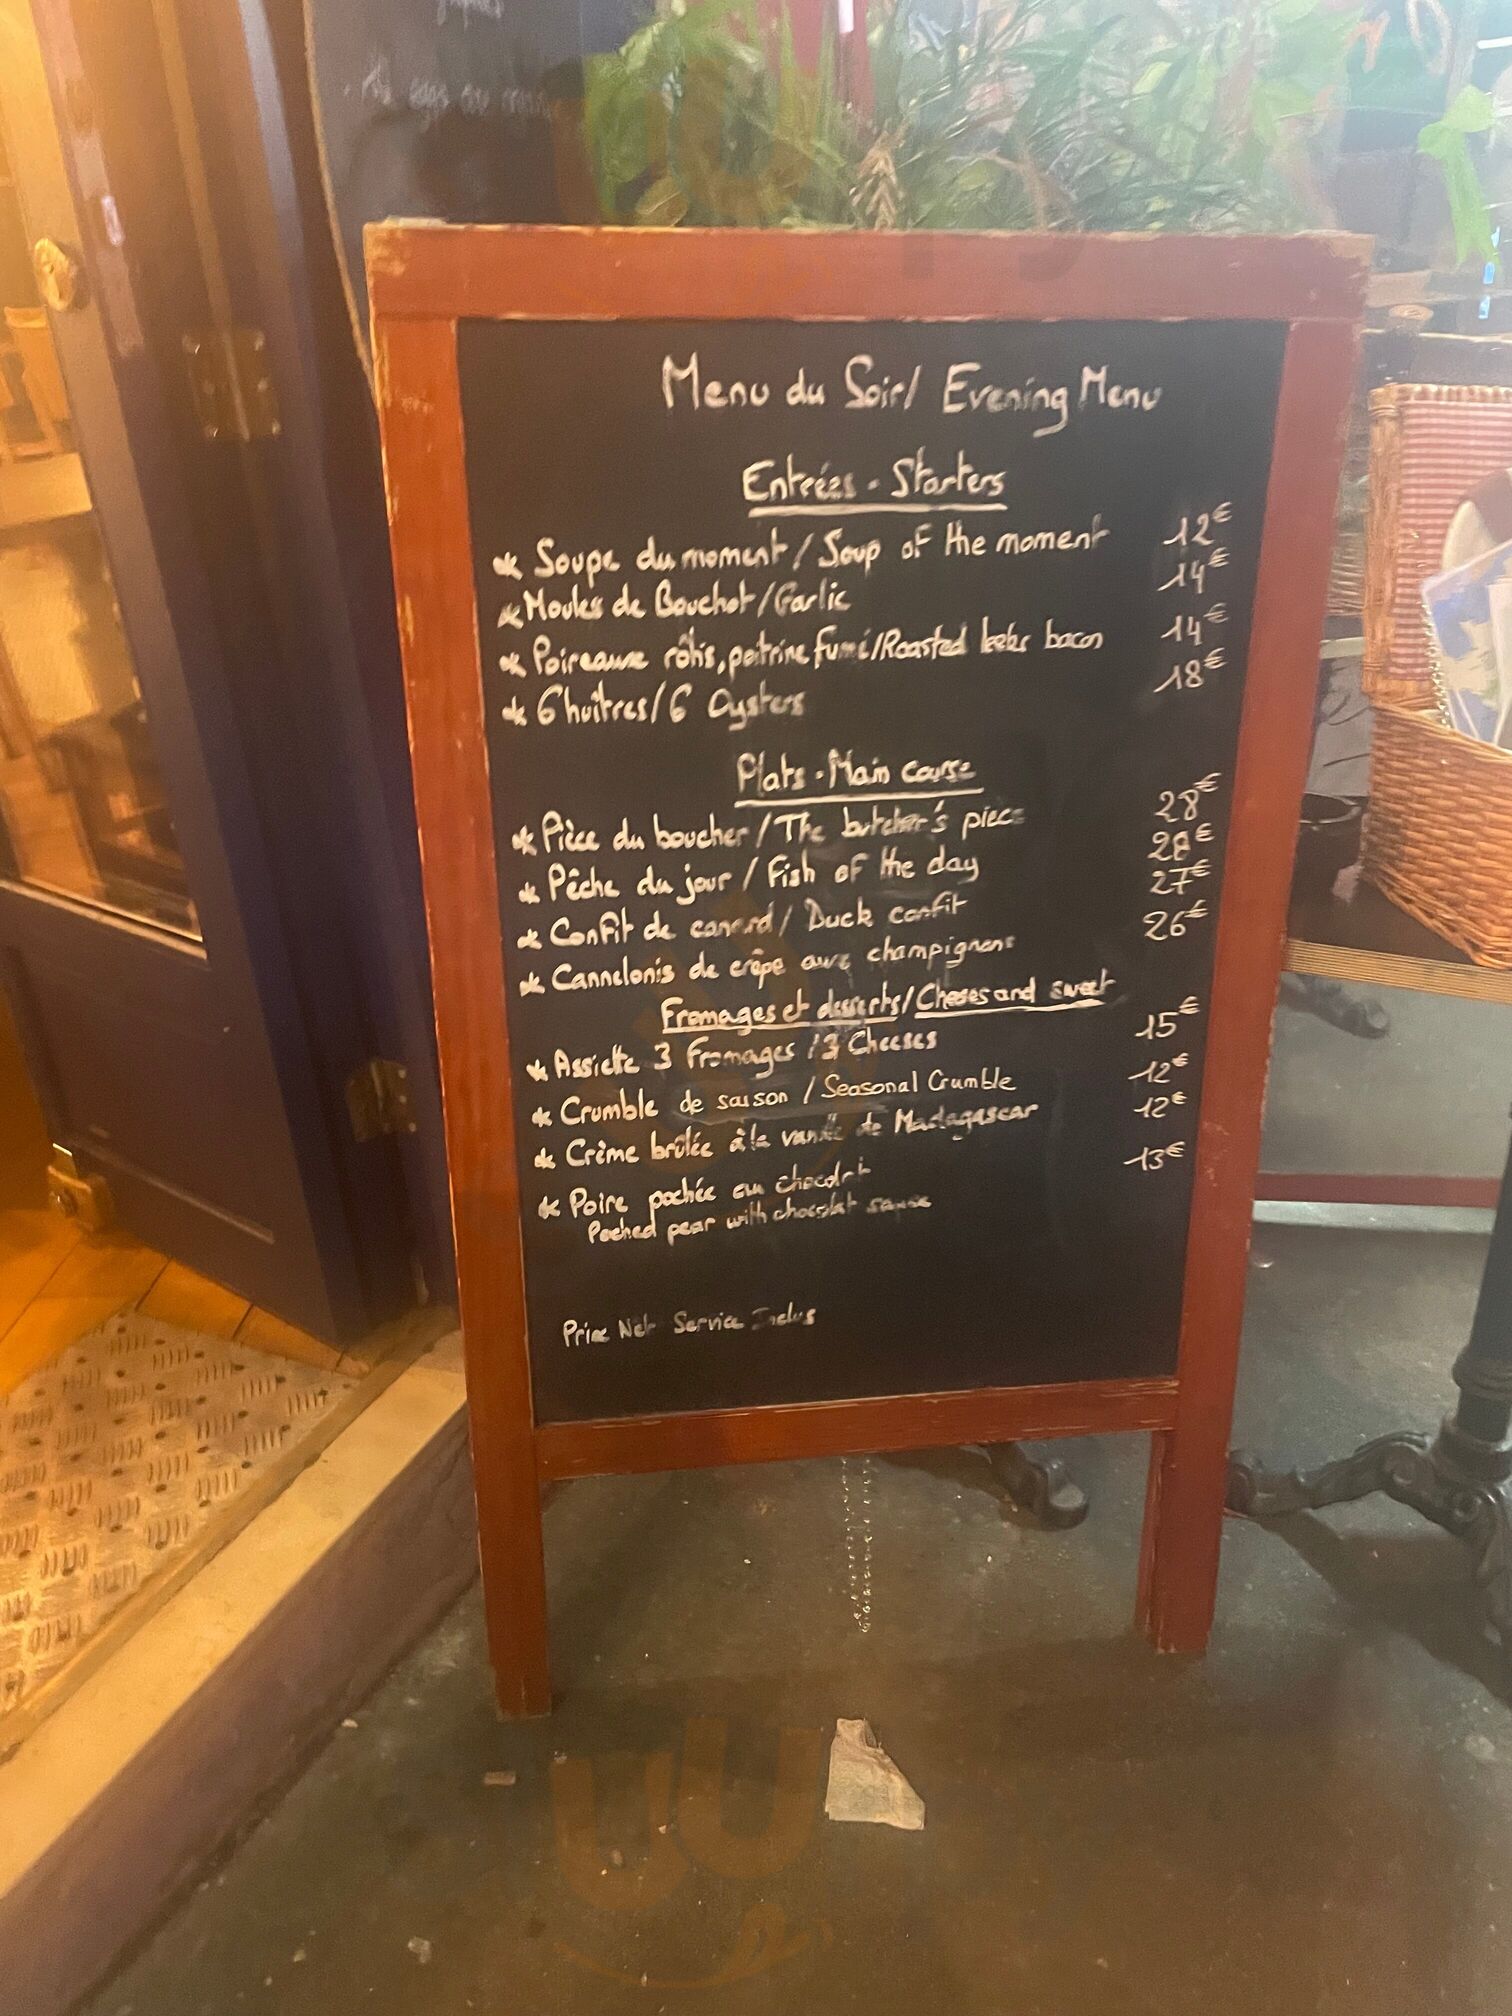 Menu du Soir/ Evening Menu
Entrées - Starters
* Soupe du moment / Soup of the moment 12€
* Moules de Bouchot / Garlic 14€
* Poireaux rôtis, poitrine fumé/Roasted leeks bacon 14€
* 6 huîtres/ 6 Oysters 18€
Plats - Main course
* Pièce du boucher / The butcher's piece 28€
* Pêche du jour / Fish of the day 28€
* Confit de canard / Duck confit 27€
* Cannelonis de crêpe aux champignons 26€
Fromages et desserts/Cheeses and sweet
* Assiette 3 Fromages / 3 Cheeses 15€
* Crumble de saison / Seasonal Crumble 12€
* Crème brûlée à la vanille de Madagascar 12€
* Poire pochée au chocolat 13€
Poched pear with chocolat sauce
Prix Net Service Inclus